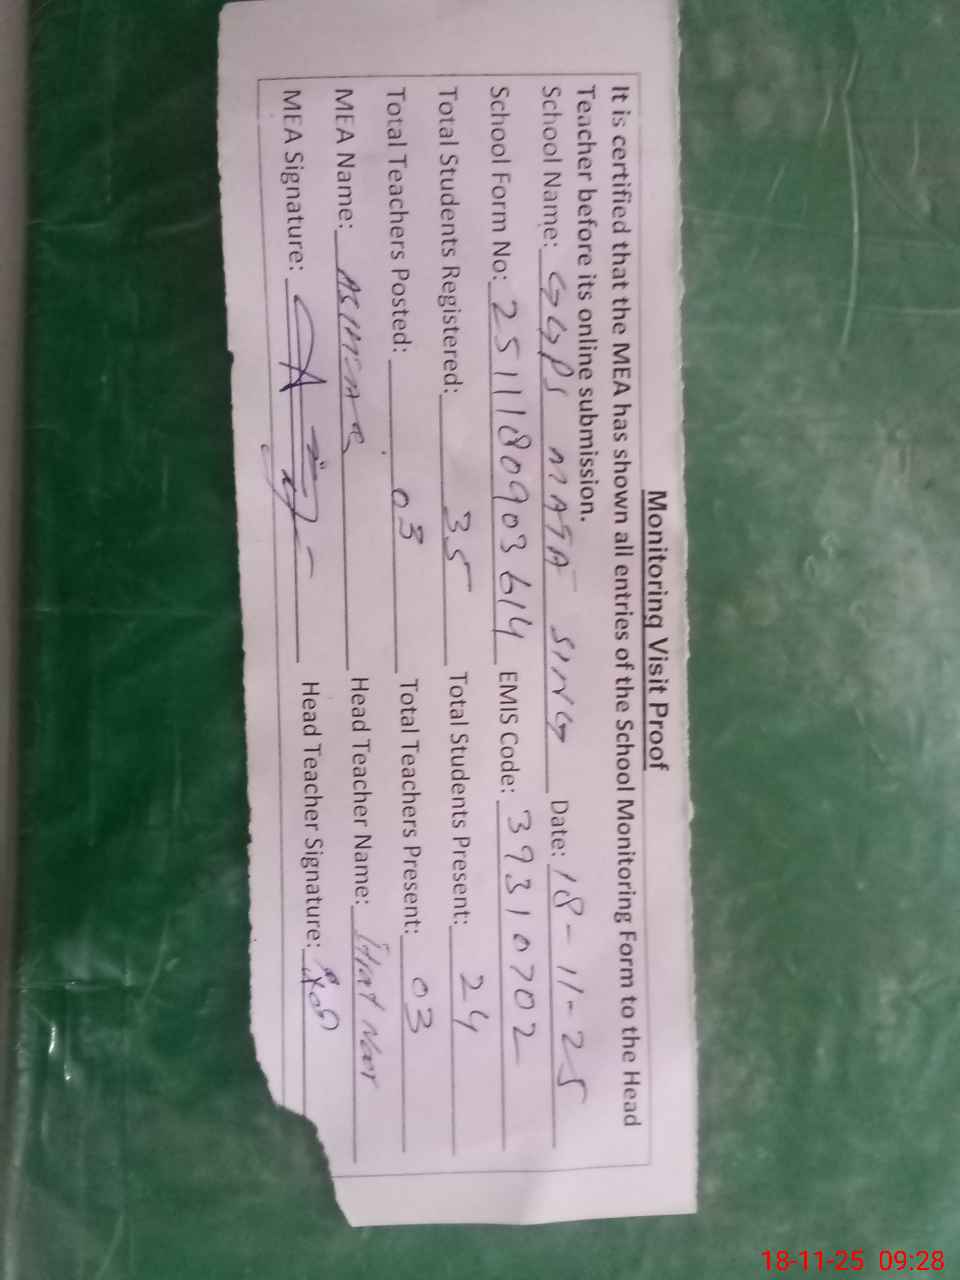 Monitoring Visit Proof
It is certified that the MEA has shown all entries of the School Monitoring Form to the Head
Teacher before its online submission.
School Name: GGPS MASA SING Date: 18-11-25
School Form No: 2511180903614 EMIS Code: 39310702
Total Students Registered: 35 Total Students Present: 24
Total Teachers Posted: 03 Total Teachers Present: 03
MEA Name: Head Teacher Name: Noor
MEA Signature: Head Teacher Signature:
18-11-25 09:28